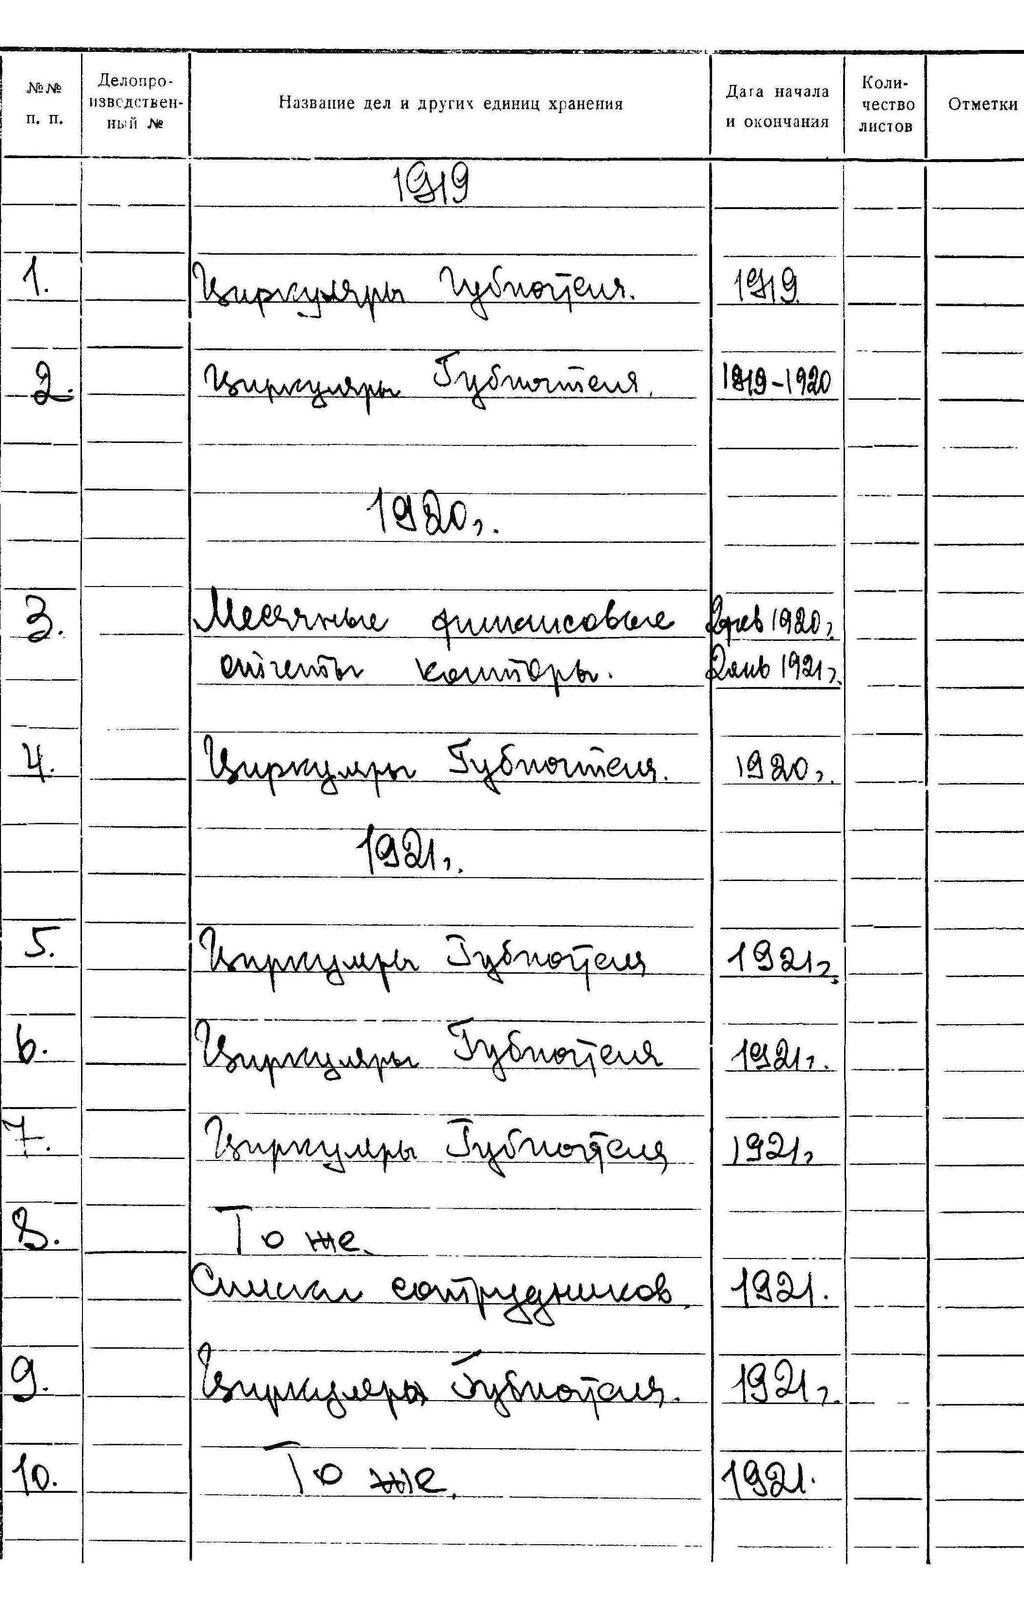 №№ п. п.
Делопро-
изводствен-
ный №
Название дел и других единиц хранения
Дата начала
и окончания
Коли-
чество
листов
Отметки
1919
1. Циркуляры Губпочтеля. 1919
2. Циркуляры Губпочтеля. 1919-1920
1920г.
3. Месячные финансовые 2 фев 1920г.
отчеты конторы. 2 янв 1921г.
4. Циркуляры Губпочтеля. 1920г.
1921г.
5. Циркуляры Губпочтеля 1921г.
6. Циркуляры Губпочтеля 1921г.
7. Циркуляры Губпочтеля 1921г
8. То же.
Списки сотрудников. 1921.
9. Циркуляры Губпочтеля. 1921г.
10. То же. 1921.